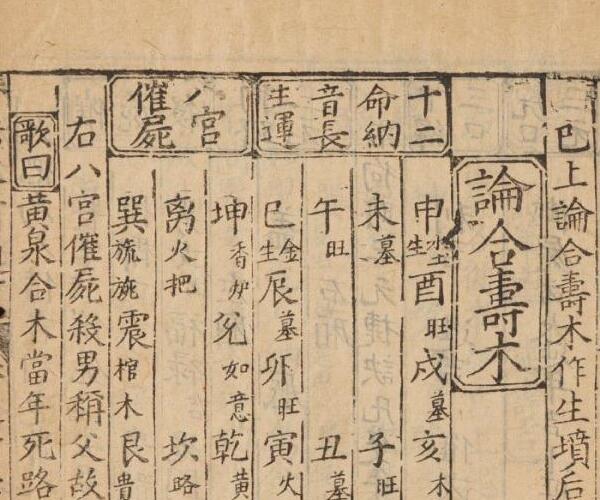 巳上論合壽木作生墳后
論合壽木
十二
命納
音長
生運
申水土生酉旺戌墓亥木
未墓子旺
午旺丑墓
巳金生辰墓卯旺寅火
八宮
催屍
坤香炉兌如意乾黄
离火把坎路
巽震棺木艮貴
右八宮催屍殺男稱父故
歌曰黃泉合木當年死路